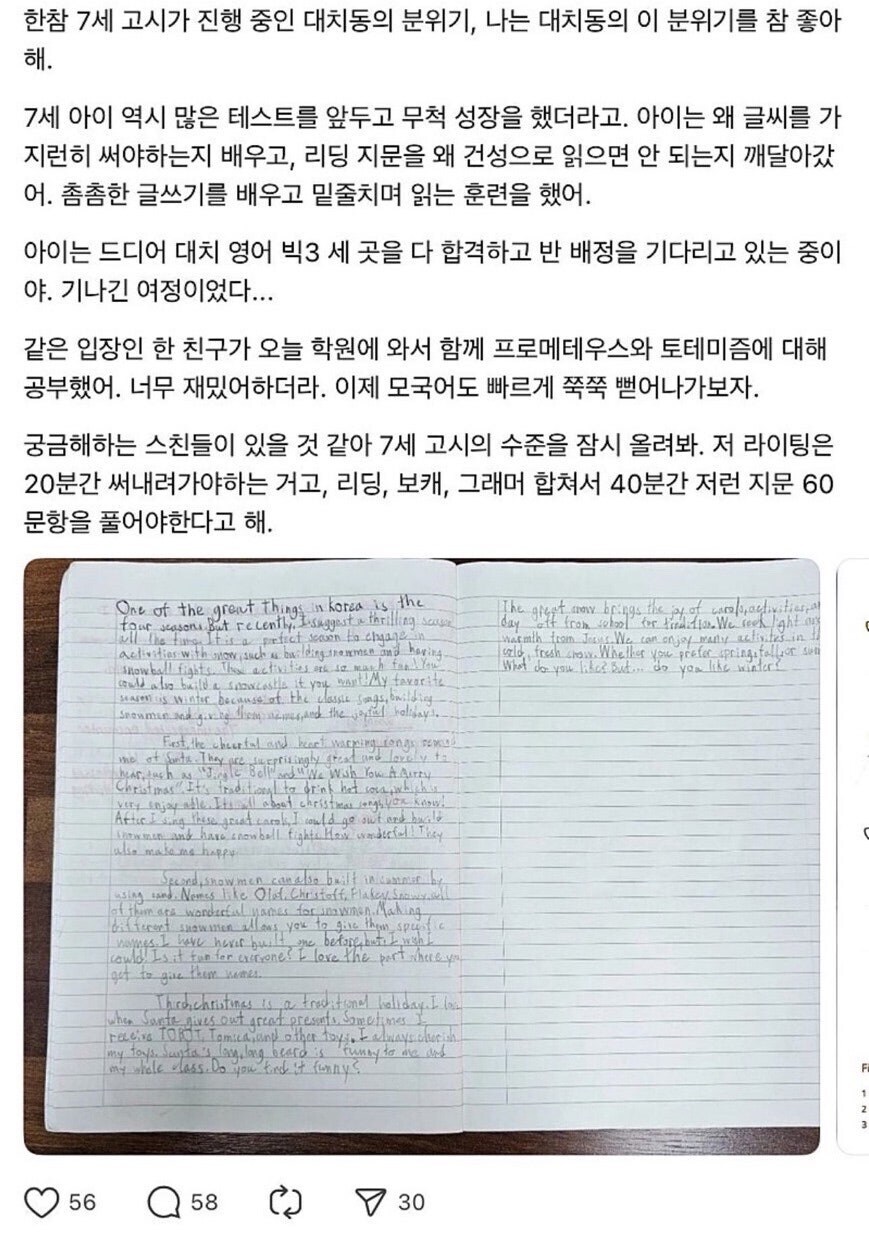 한참 7세 고시가 진행 중인 대치동의 분위기, 나는 대치동의 이 분위기를 참 좋아
해.
7세 아이 역시 많은 테스트를 앞두고 무척 성장을 했더라고. 아이는 왜 글씨를 가
지런히 써야하는지 배우고, 리딩 지문을 왜 건성으로 읽으면 안 되는지 깨달아갔
어. 촘촘한 글쓰기를 배우고 밑줄치며 읽는 훈련을 했어.
아이는 드디어 대치 영어 빅3 세 곳을 다 합격하고 반 배정을 기다리고 있는 중이
야. 기나긴 여정이었다...
같은 입장인 한 친구가 오늘 학원에 와서 함께 프로메테우스와 토테미즘에 대해
공부했어. 너무 재밌어하더라. 이제 모국어도 빠르게 쭉쭉 뻗어나가보자.
궁금해하는 스친들이 있을 것 같아 7세 고시의 수준을 잠시 올려봐. 저 라이팅은
20분간 써내려가야하는 거고, 리딩, 보캐, 그래머 합쳐서 40분간 저런 지문 60
문항을 풀어야한다고 해.
One of the great things in korea is the
four seasons. But recently, I suggest a thrilling season
all the time. It is a perfect season to engage in
activities with snow, such as building snowmen and having
snowball fights. These activities are so much fun! You
could also build a snowcastle if you want! My favorite
season is winter because of the classic songs, building
snowmen and giving them names, and the joyful holidays.
First, the cheerful and heart warming songs remind
me of Santa. They are surprisingly great and lovely to
hear, such as "Jingle Bell" and "We Wish You A Merry
Christmas". It's traditional to drink hot coco, which is
very enjoyable. It's all about christmas songs, you know!
After I sing these great carols, I could go out and build
snowmen and have snowball fights. How wonderful! They
also make me happy.
Second, snowmen can also built in summer by
using sand. Names like Olaf, Christoff, Flakey, Snowy, all
of them are wonderful names for snowmen. Making
different snowmen allows you to give them specific
names. I have never built one before, but I wish I
could! Is it fun for everyone? I love the part where you
get to give them names.
Third, christmas is a traditional holiday. I love
when Santa gives out great presents. Sometimes I
receive TOBOT, Tomica, and other toys. I always cherish
my toys. Santa's long, long beard is funny to me and
my whole class. Do you find it funny?
The great snow brings the joy of carols, activities, an
day off from school for tradition. We seek light and
warmth from Jesus. We can enjoy many activities in t
cold, fresh snow. Whether you prefer spring, fall, or sum
What do you like? But... do you like winter?
56
58
30
Fi
1
2
3